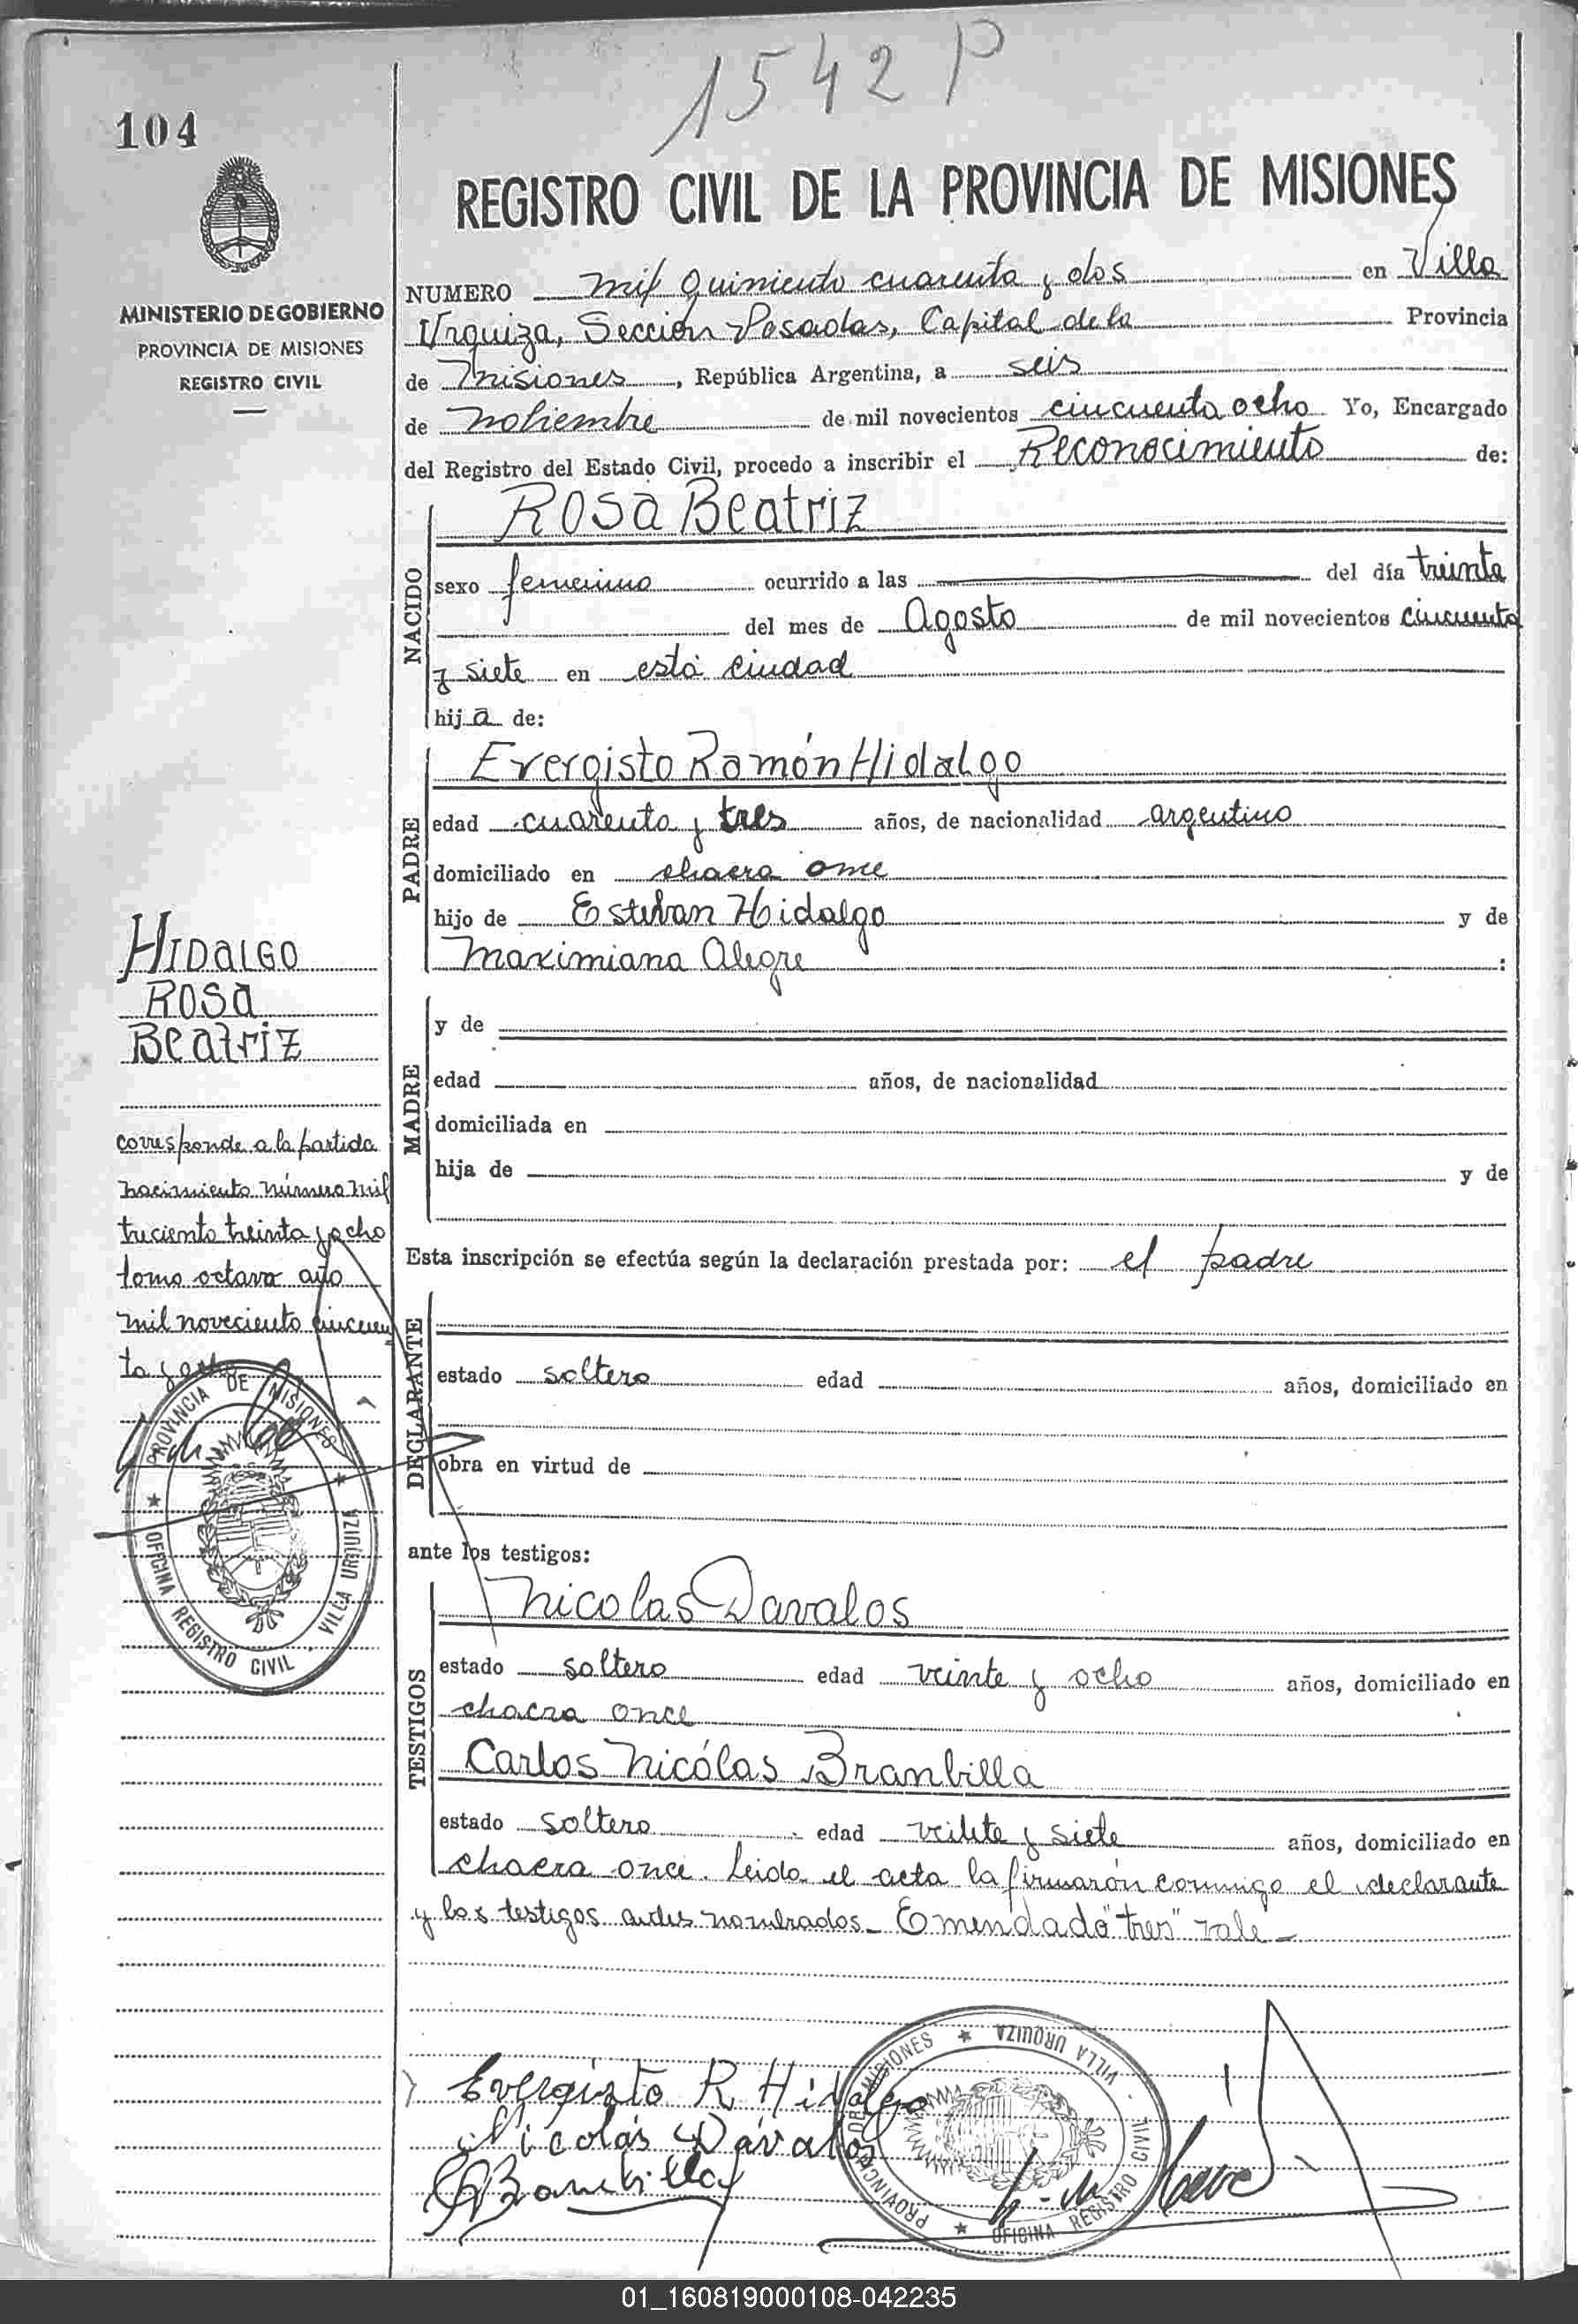 1542 P
104
REGISTRO CIVIL DE LA PROVINCIA DE MISIONES
MINISTERIO DE GOBIERNO
PROVINCIA DE MISIONES
REGISTRO CIVIL
NUMERO mil quiniento cuarenta y dos en Villa
Urquiza, Sección Posadas, Capital de la Provincia
de Misiones, República Argentina, a seis
de nobiembre de mil novecientos cincuenta ocho Yo, Encargado
del Registro del Estado Civil, procedo a inscribir el Reconocimiento de:
NACIDO
Rosa Beatriz
sexo femenino ocurrido a las del día treinta
del mes de Agosto de mil novecientos cincuenta
y siete en esta ciudad
hija de:
PADRE
Evergisto Ramón Hidalgo
edad cuarenta y tres años, de nacionalidad argentino
domiciliado en chacra once
hijo de Esteban Hidalgo y de
Maximiana Alegre :
HIDALGO
Rosa
Beatriz
MADRE
y de
edad años, de nacionalidad
domiciliada en
hija de y de
corresponde a la partida
nacimiento número mil
treciento treinta y ocho
tomo octavo año
mil noveciento cincuen
ta y ocho
Esta inscripción se efectúa según la declaración prestada por: el padre
DECLARANTE
estado soltero edad años, domiciliado en
obra en virtud de
PROVINCIA DE MISIONES
OFICINA REGISTRO CIVIL - VILLA URQUIZA
ante los testigos:
TESTIGOS
Nicolas Davalos
estado soltero edad veinte y ocho años, domiciliado en
chacra once
Carlos Nicólas Branbilla
estado soltero edad veinte y siete años, domiciliado en
chacra once. Leida el acta la firmarón conmigo el declarante
y los testigos antes nombrados- Emendado "tres" vale-
Evergisto R Hidalgo
Nicolás Dávalos
Branbilla
PROVINCIA DE MISIONES
OFICINA REGISTRO CIVIL - VILLA URQUIZA
01_160819000108-042235